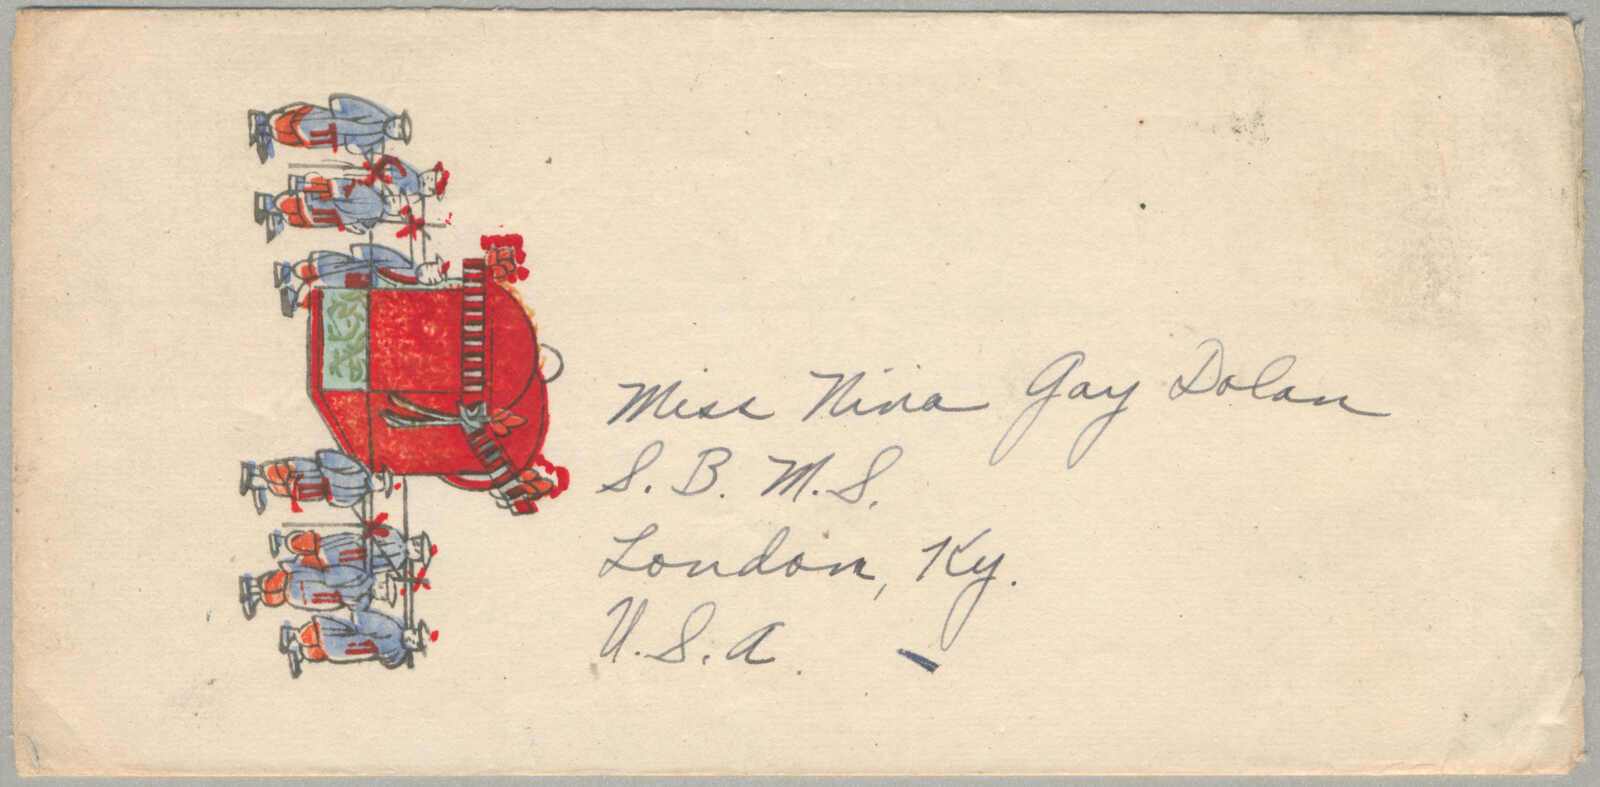 Miss Nina Gay Dolan
S. B. M. S.
London, Ky.
U. S. A.